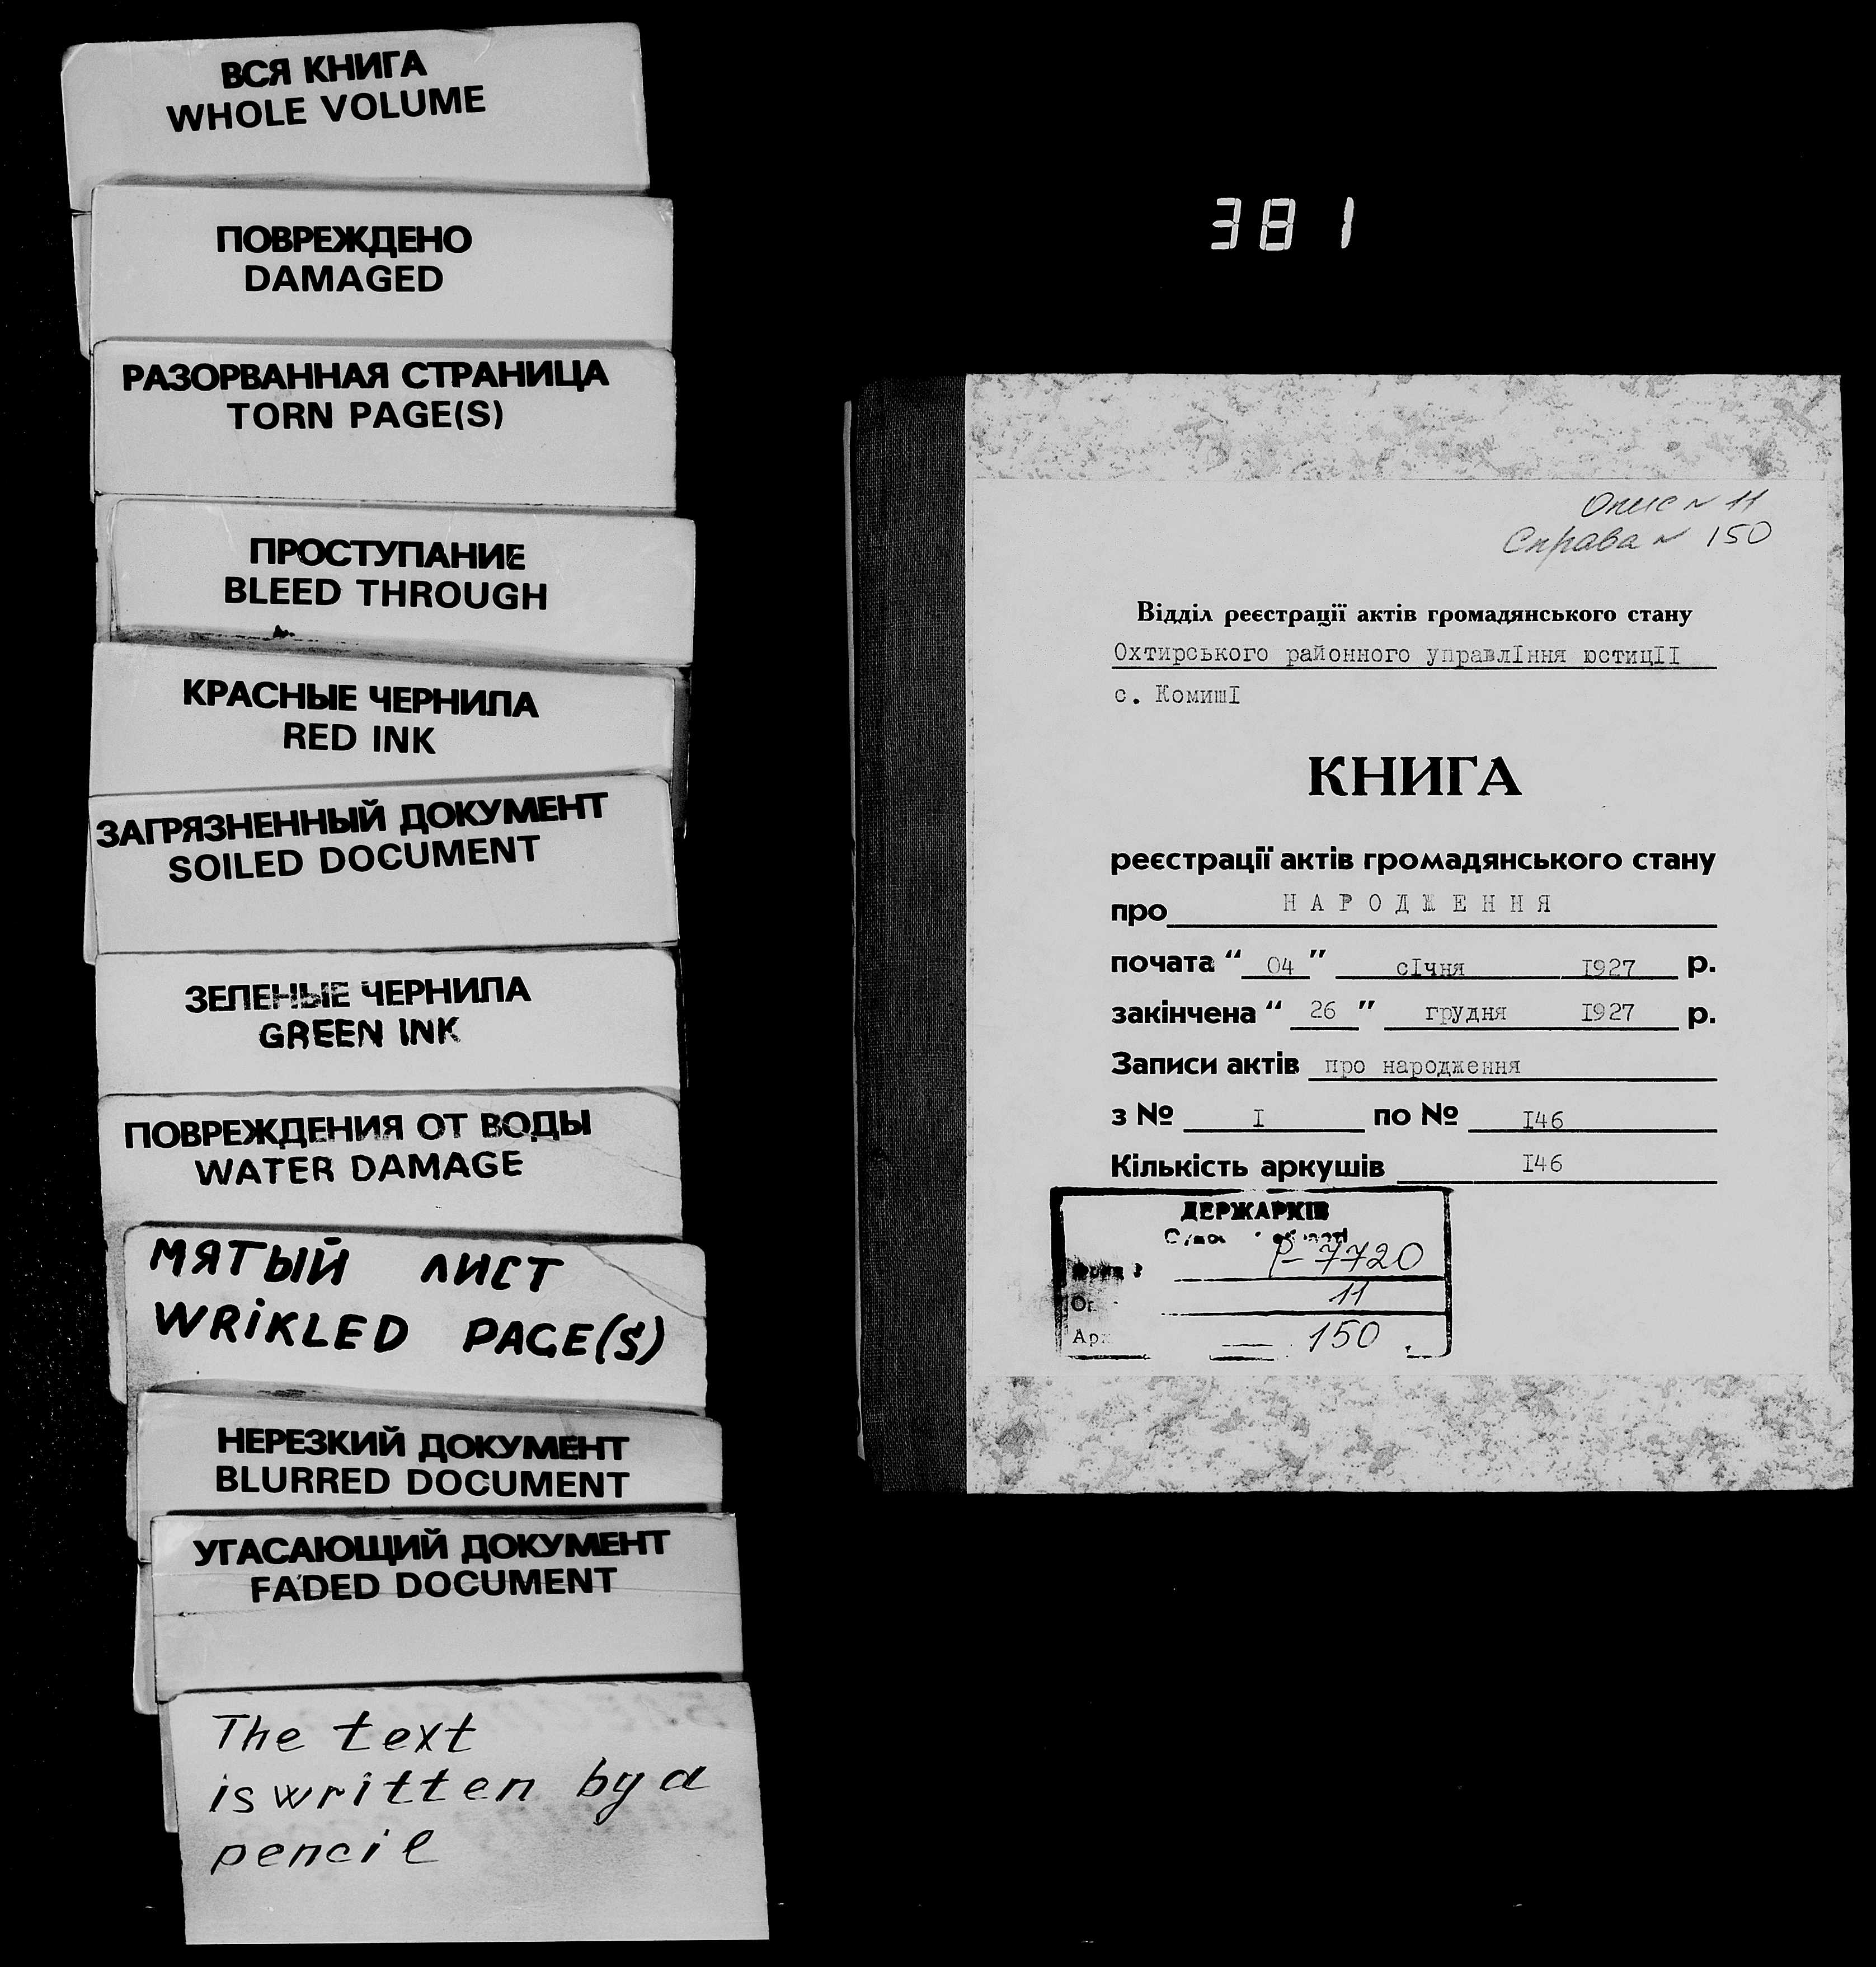 ВСЯ КНИГА
WHOLE VOLUME
ПОВРЕЖДЕНО
DAMAGED
РАЗОРВАННАЯ СТРАНИЦА
TORN PAGE(S)
ПРОСТУПАНИЕ
BLEED THROUGH
КРАСНЫЕ ЧЕРНИЛА
RED INK
ЗАГРЯЗНЕННЫЙ ДОКУМЕНТ
SOILED DOCUMENT
ЗЕЛЕНЫЕ ЧЕРНИЛА
GREEN INK
ПОВРЕЖДЕНИЯ ОТ ВОДЫ
WATER DAMAGE
МЯТЫЙ ЛИСТ
WRIKLED PAGE(S)
НЕРЕЗКИЙ ДОКУМЕНТ
BLURRED DOCUMENT
УГАСАЮЩИЙ ДОКУМЕНТ
FADED DOCUMENT
The text
is written by a
pencil
381
Опис N 11
Справа N 150
Відділ реєстрації актів громадянського стану
Охтирського районного управлІння юстицІІ
с. КомишІ
КНИГА
реєстрації актів громадянського стану
про НАРОДЖЕННЯ
почата “ 04 ” сІчня І927 р.
закінчена “ 26 ” грудня І927 р.
Записи актів про народження
з № І по № І46
Кількість аркушів І46
ДЕРЖАРХІВ
Р-7720
11
150